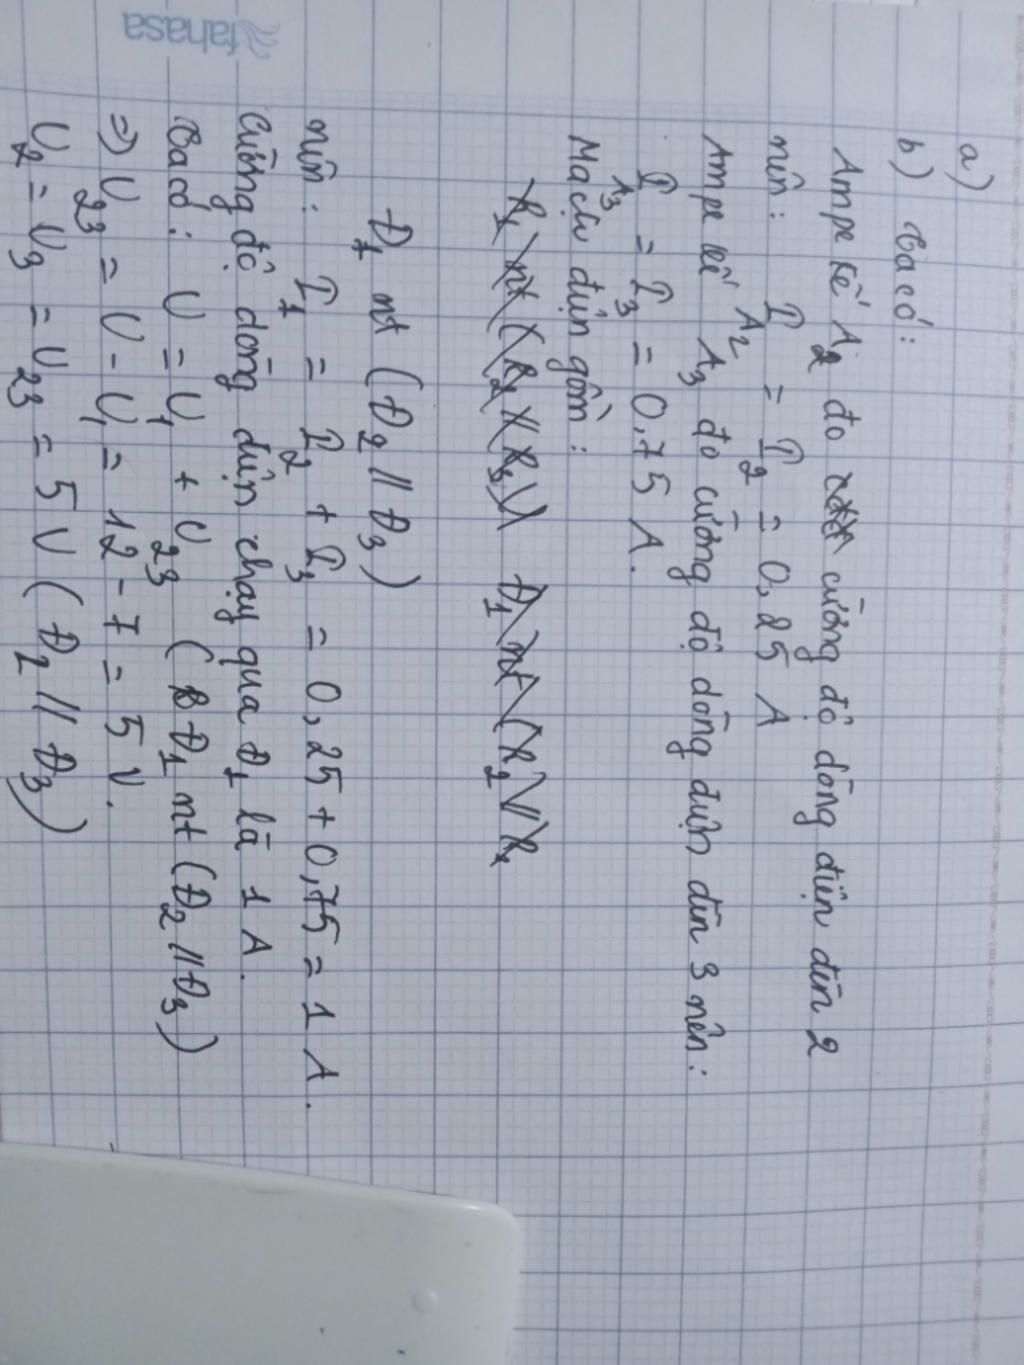 fahasa
a)
b) Ta có:
Ampe kế A2 đo cường độ dòng điện đèn 2
nên: I_A2 = I2 = 0,25 A
Ampe kế A3 đo cường độ dòng điện đèn 3 nên:
I_A3 = I3 = 0,75 A.
Mạch điện gồm:
R1 nt (R2 // R3) Đ1 nt (R2 // R
Đ1 nt (Đ2 // Đ3)
nên: I1 = I2 + I3 = 0,25 + 0,75 = 1 A.
Cường độ dòng điện chạy qua Đ1 là 1 A.
Ta có: U = U1 + U23 (Đ1 nt (Đ2 // Đ3)
=> U23 = U - U1 = 12 - 7 = 5 V.
U2 = U3 = U23 = 5 V (Đ2 // Đ3)